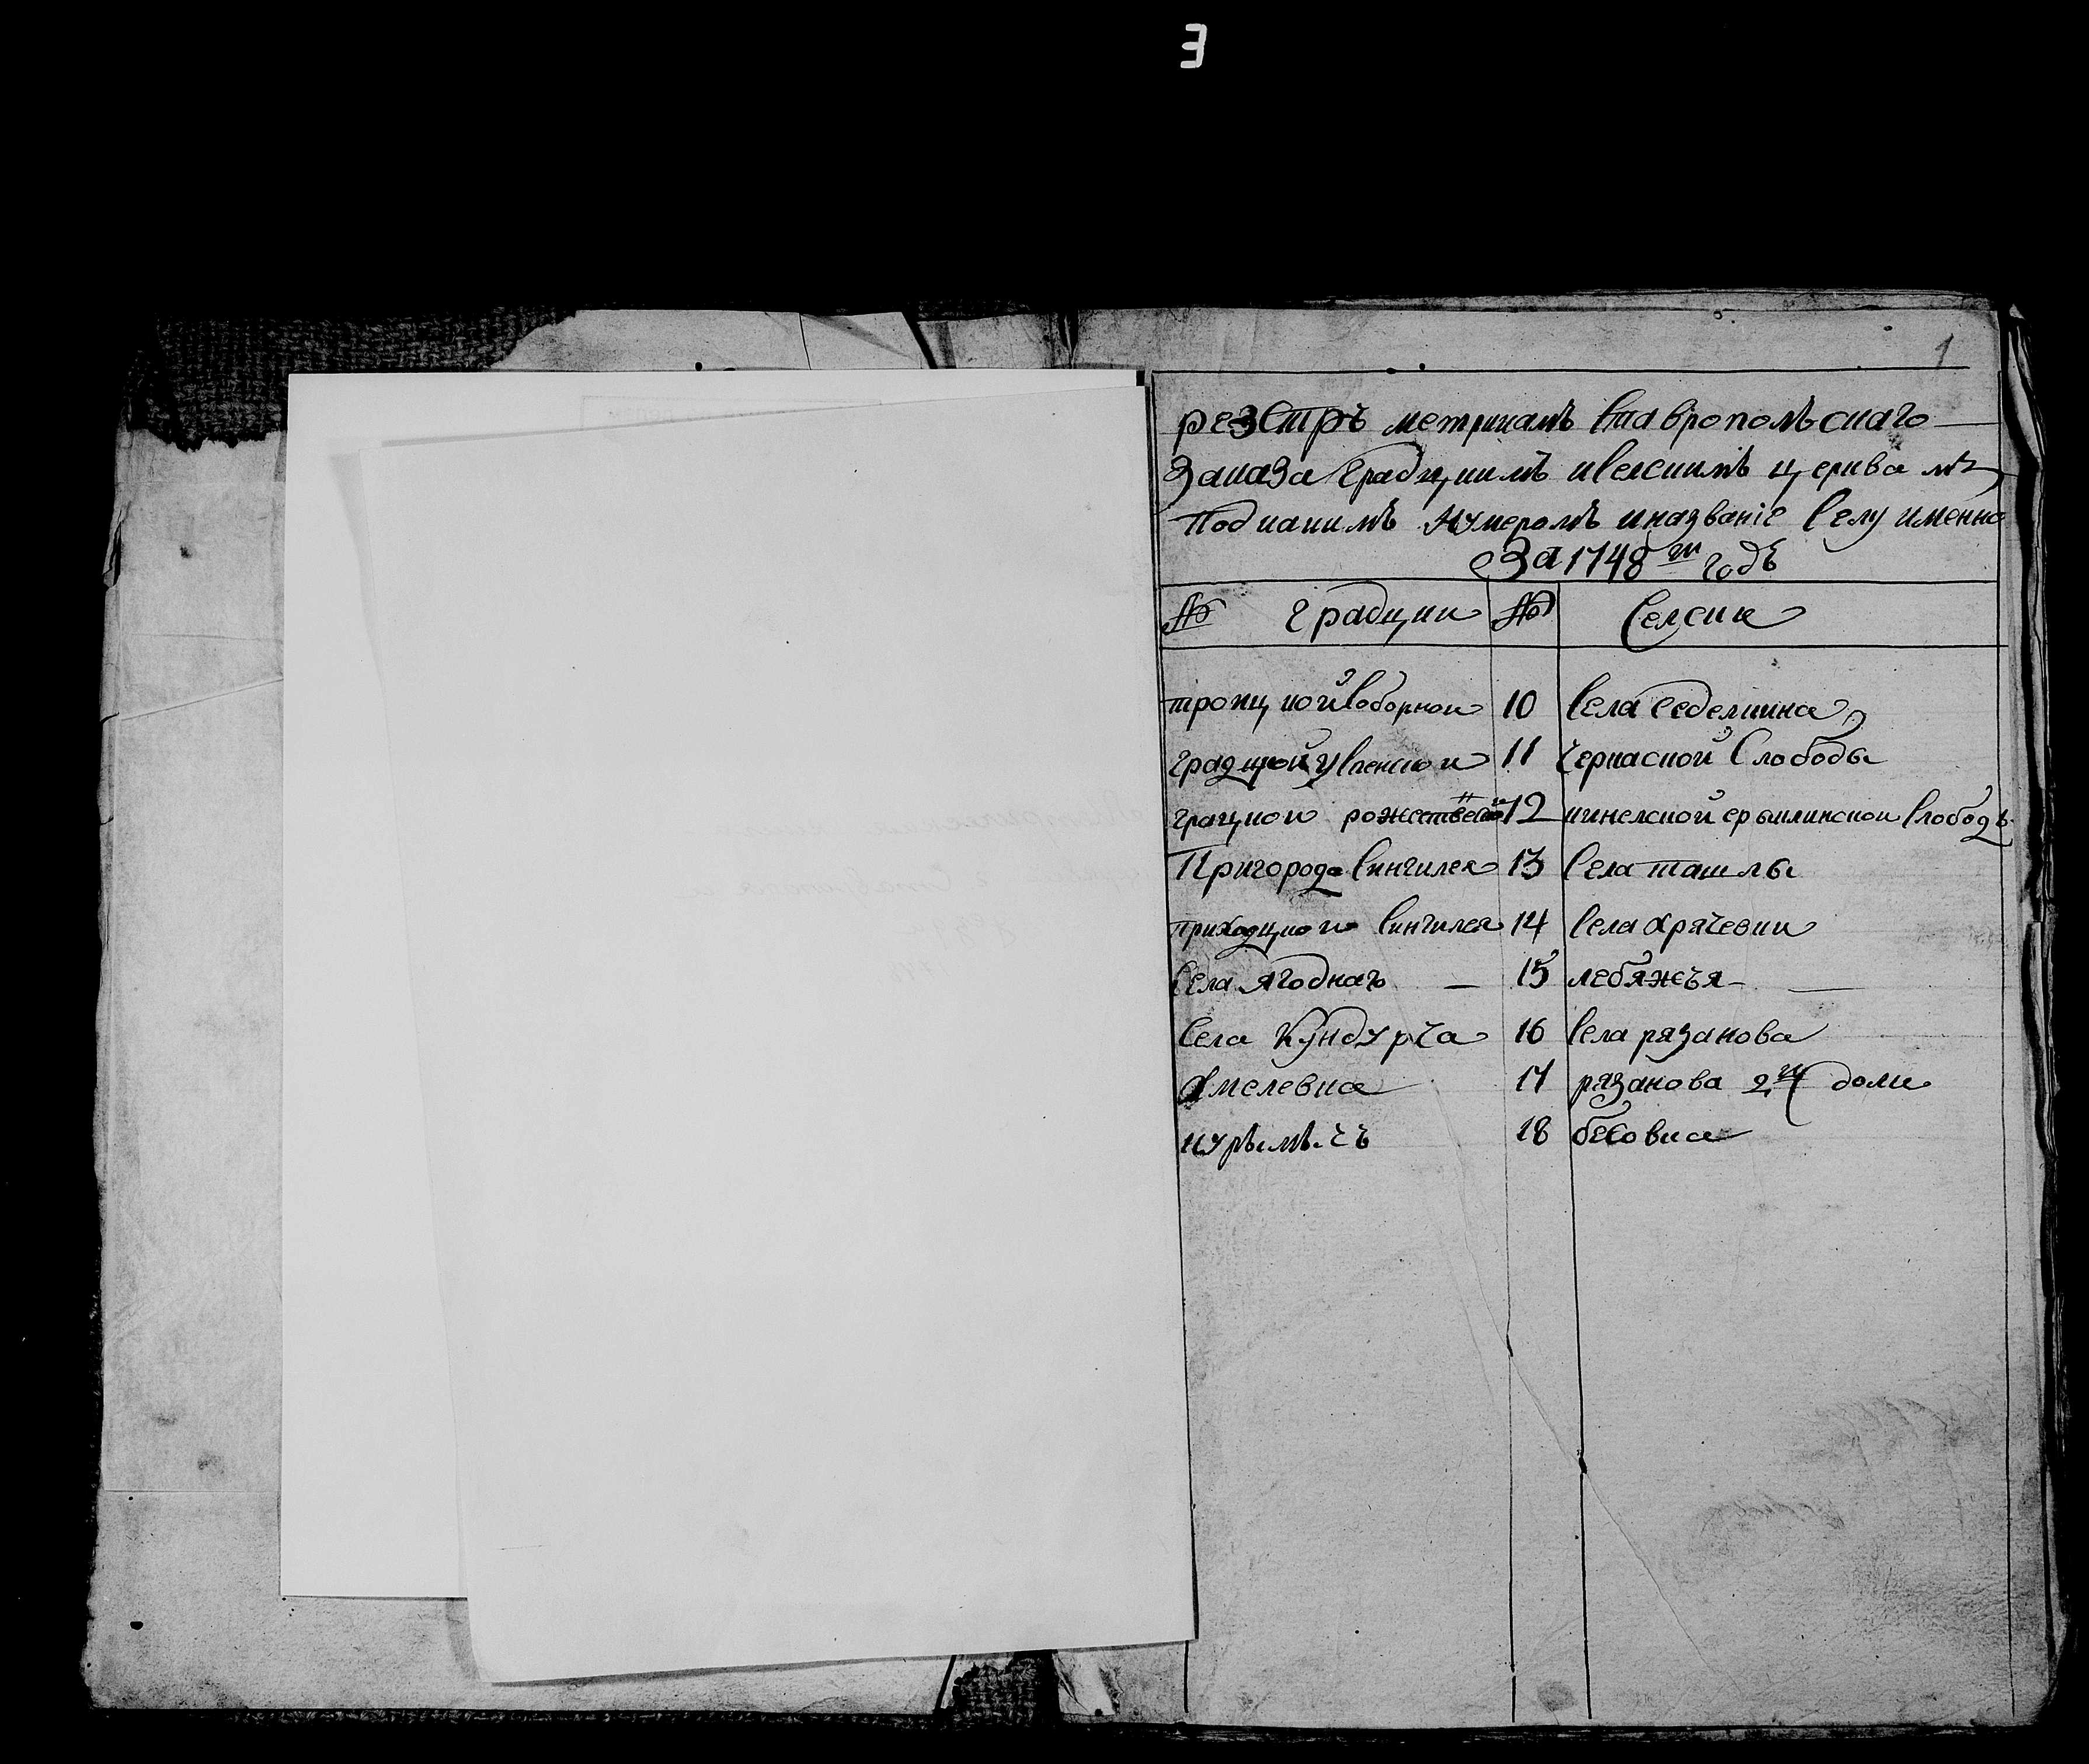 3
1
реэстръ метрикамъ ставропольскаго
заказа градцкимъ иселскимъ церквамъ
подкакимъ нумеромъ иназваніе селу именно
За 1748 ги годъ
№ градцкии № селские
троицкой соборнои 10 села седелкина
градцкой успенскои 11 черкаской Слободы
грацкои рожественской 12 кинелской крымлинскои слободъ
Пригорода сингилея 13 села ташлы
приходцкои сингилея 14 села хрячевки
села Ягоднаго — 15 лебяжъя —
села Кундурча 16 села рязанова
хмелевка 17 рязанова 2й доли
курѣмъчъ 18 бесовка